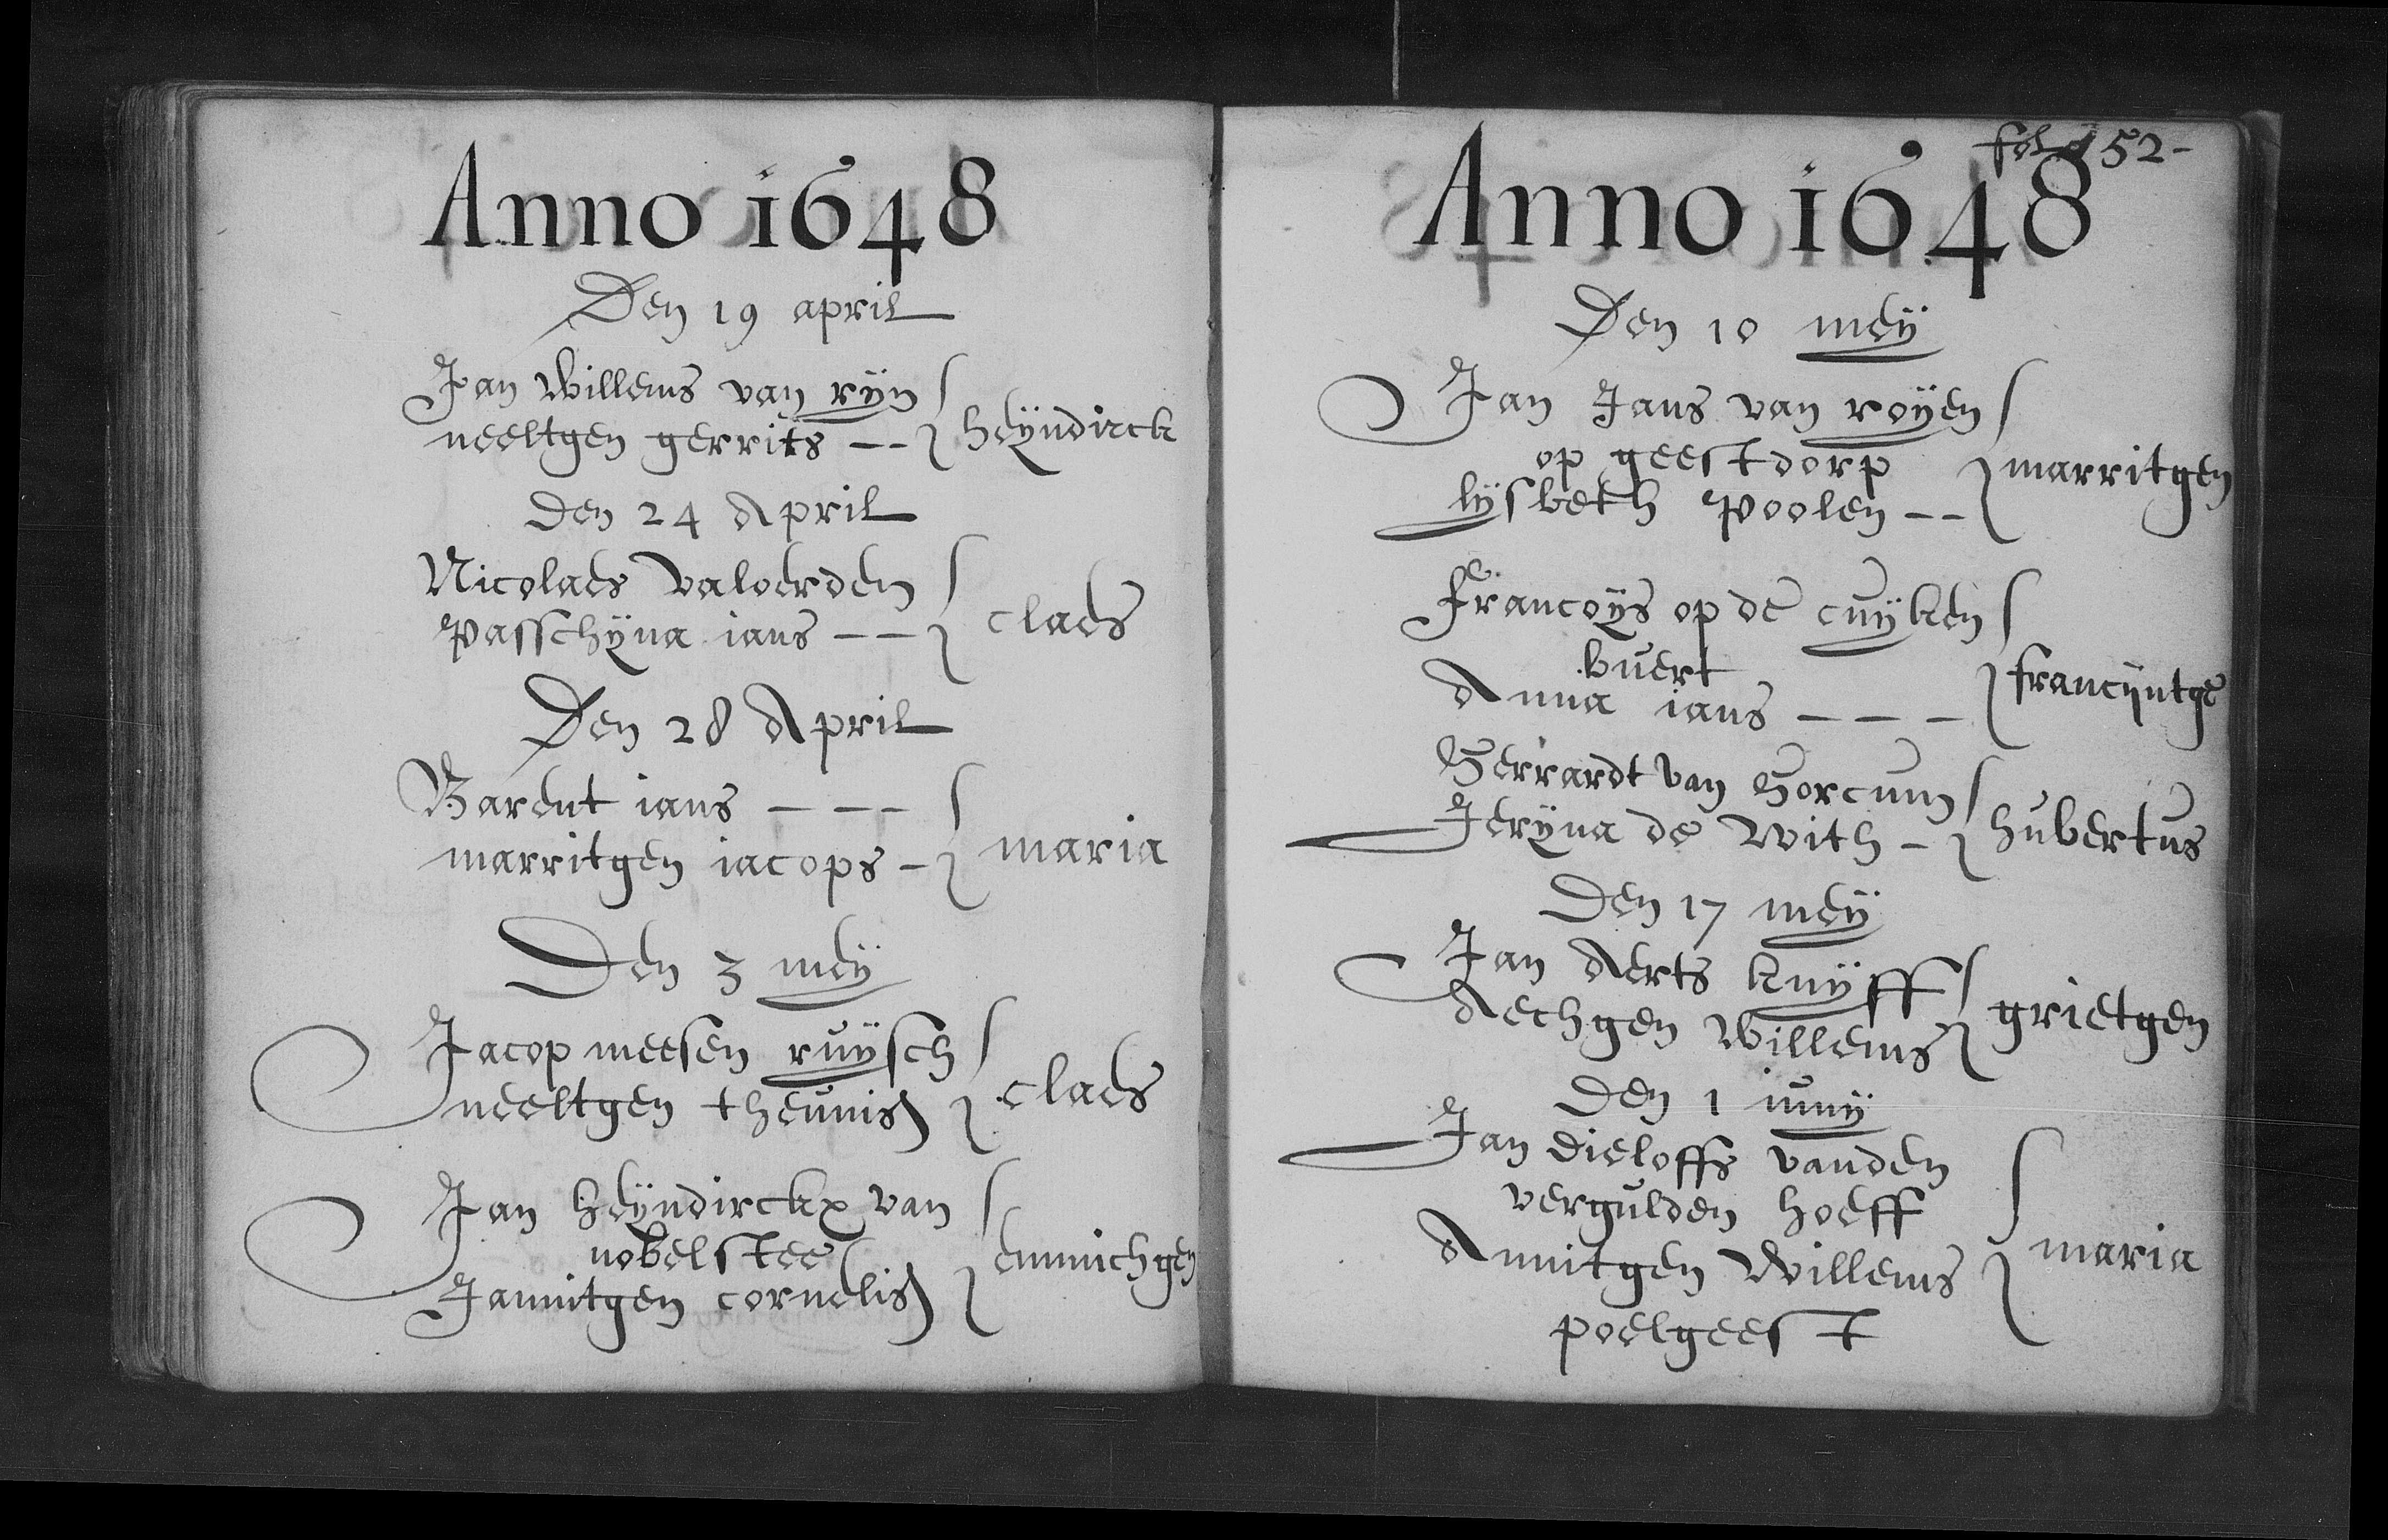 Anno 1648
Den 19 april
Jan Willems van rÿn
neeltgen gerrits -- heÿndirck
den 24 April
Nicolaes valverden
passchÿna ians -- claes
Den 28 April
Barent ians ---
marritgen iacops - maria
Den 3 meÿ
Jacop meesen ruÿsch
neeltgen theunis claes
Jan heÿndirckx van
nobelstee
Jannitgen cornelis emmichgen
fol 52-
Anno 1648
Den 10 meÿ
Jan Jans van roÿen
op geestdorp marritgen
lÿsbeth poolen --
Francoÿs op de cuÿken
buert
Anna ians --- francÿntge
Gerrardt van Gorcum
Jerÿna de With - hubertus
Den 17 meÿ
Jan Aerts knÿff
Aechgen Willems grietgen
Den 1 iunÿ
Jan dieloffs vanden
vergulden hoeff
Annitgen Willems maria
poelgeest